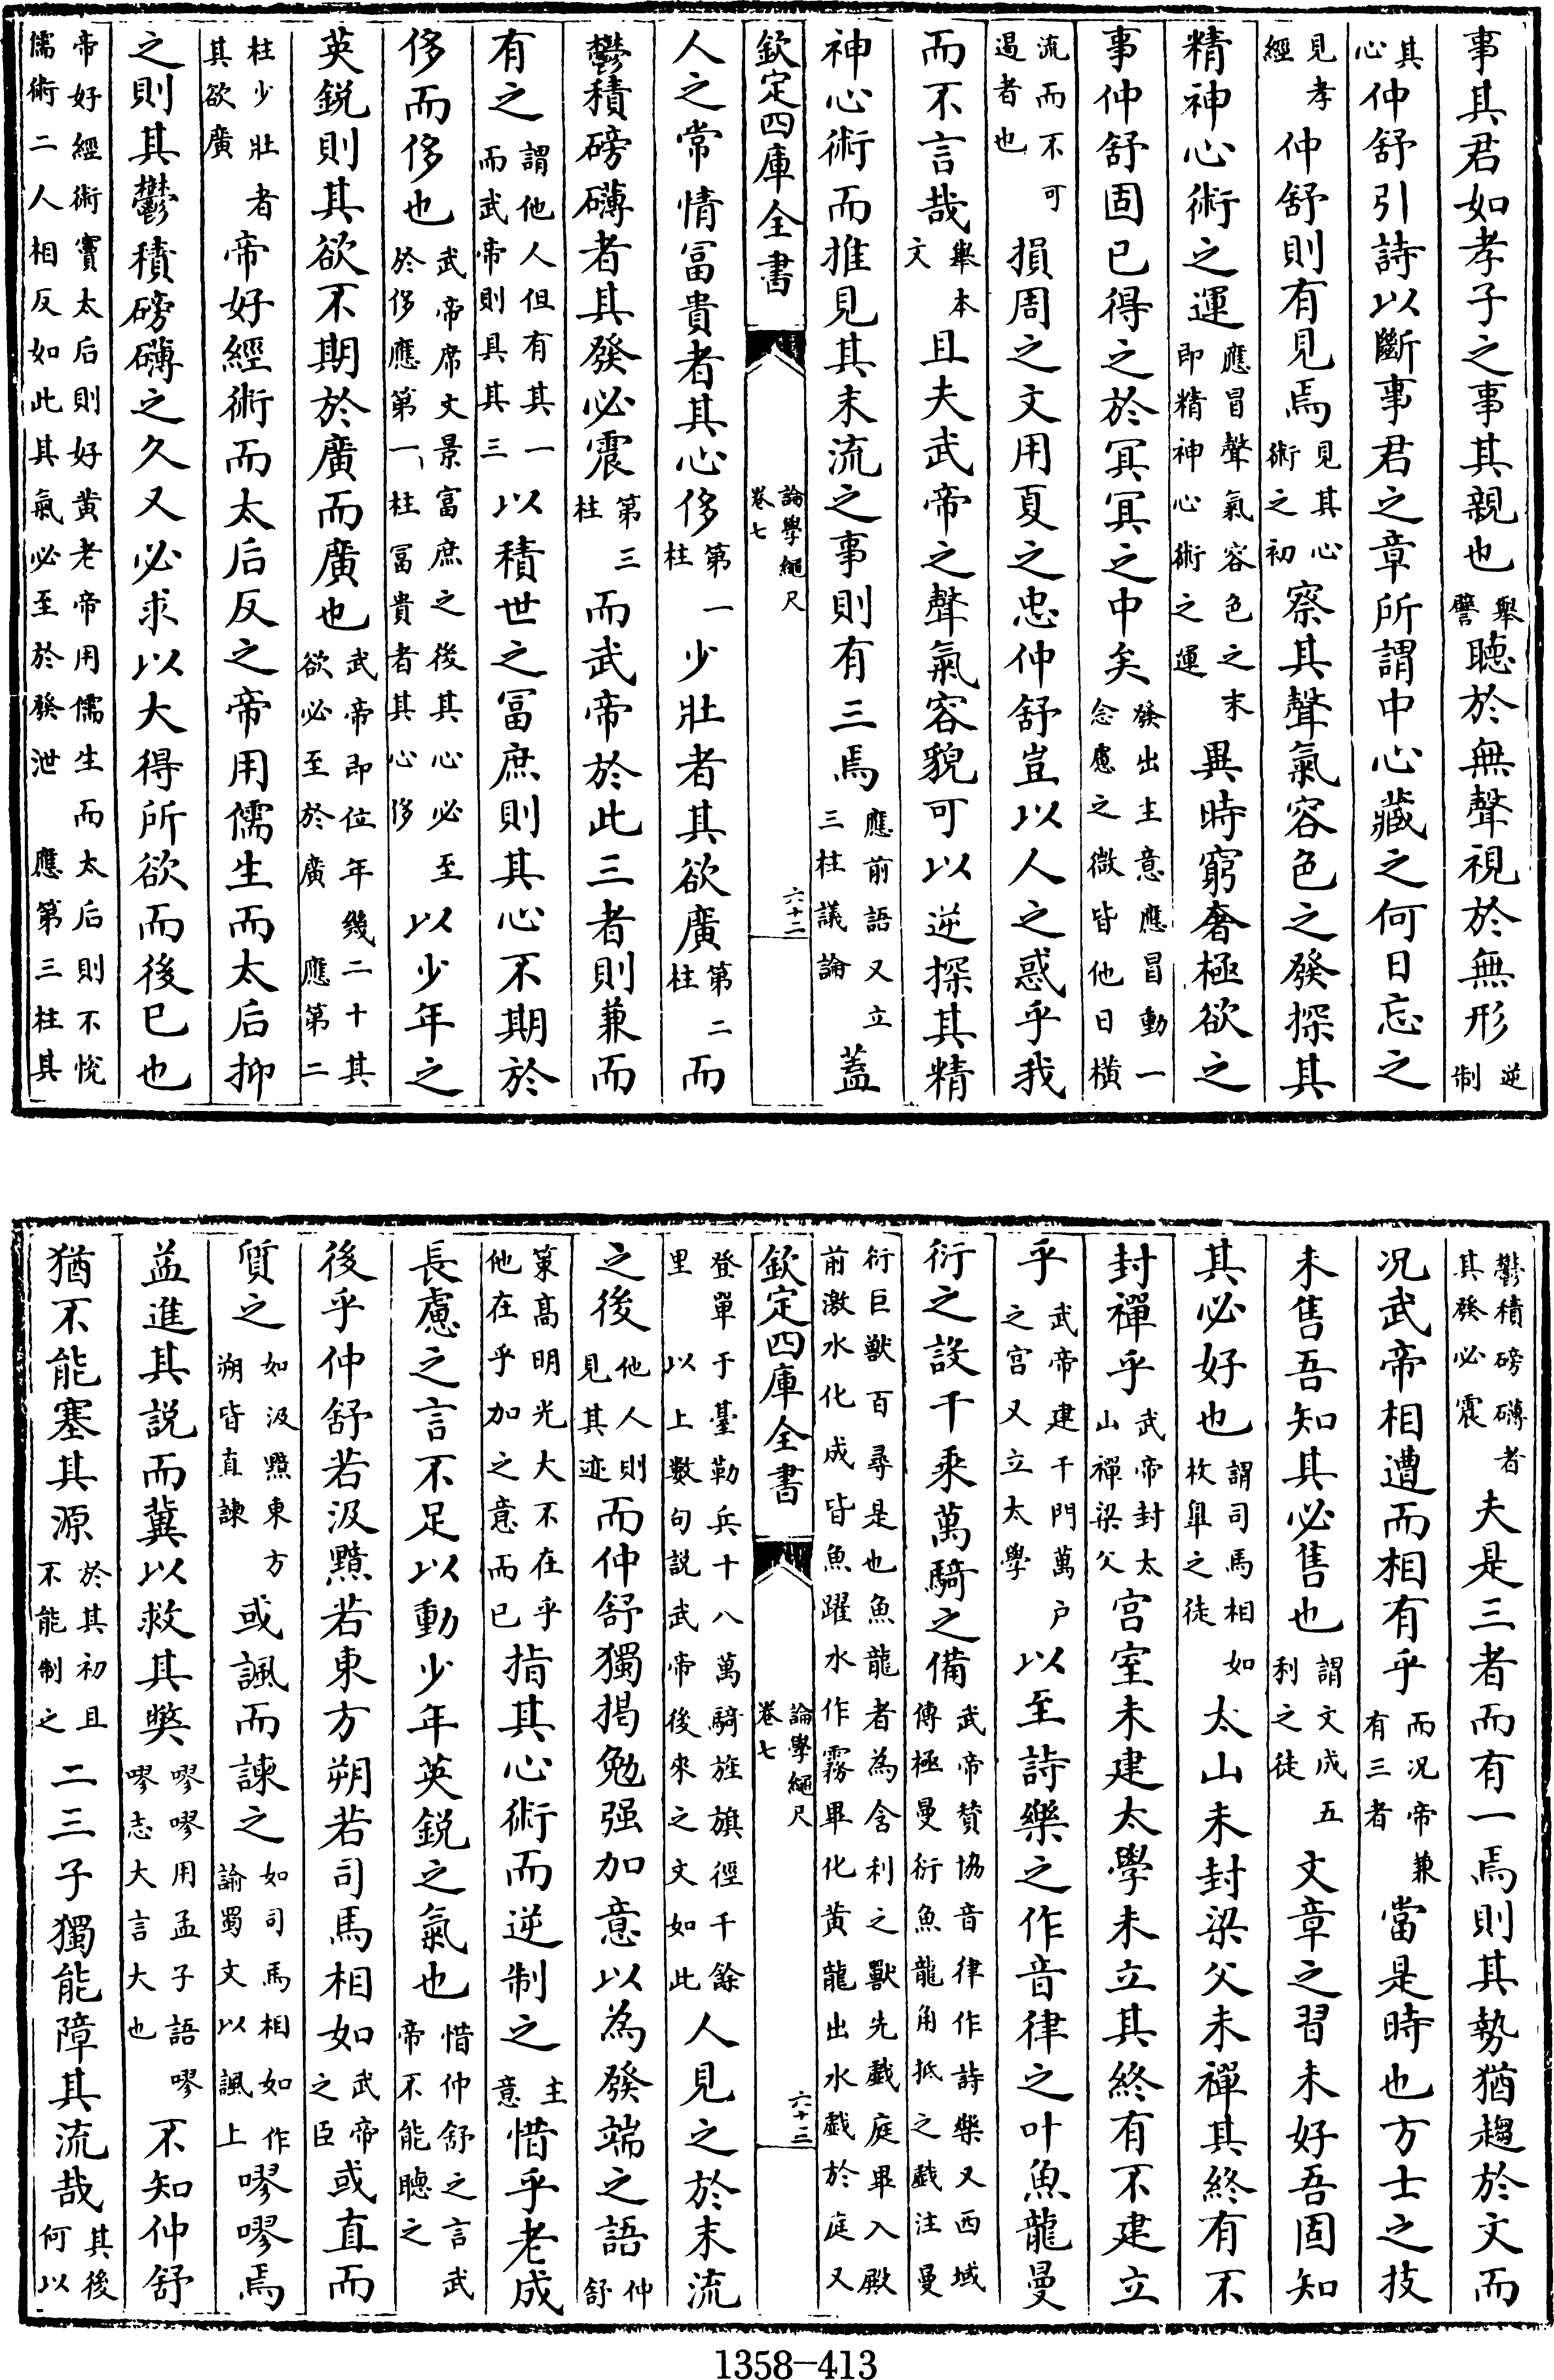 事其君如孝子之事其親也舉譬聽於無聲視於無形逆制
其心仲舒引詩以斷事君之章所謂中心藏之何日忘之
見孝經仲舒則有見焉見其心術之初察其聲氣容色之發探其
精神心術之運應冒聲氣容色之末即精神心術之運異時窮奢極欲之
事仲舒固已得之於冥冥之中矣發出主意應冒動一念慮之微皆他日橫
流而不可遏者也損周之文用夏之忠仲舒豈以人之惑乎我
而不言哉舉本文且夫武帝之聲氣容貌可以逆探其精
神心術而推見其末流之事則有三焉應前語又立三柱議論蓋
欽定四庫全書 論學繩尺卷七 六十二
人之常情冨貴者其心侈第一柱少壯者其欲廣第二柱而
鬱積磅礴者其發必震第三柱而武帝於此三者則兼而
有之謂他人但有其一而武帝則具其三以積世之冨庶則其心不期於
侈而侈也武帝席文景富庶之後其心必至於侈應第一柱冨貴者其心侈以少年之
英鋭則其欲不期於廣而廣也武帝即位年幾二十其欲必至於廣應第二
柱少壯者其欲廣帝好經術而太后反之帝用儒生而太后抑
之則其鬱積磅礴之久又必求以大得所欲而後已也
帝好經術竇太后則好黄老帝用儒生而太后則不悅儒術二人相反如此其氣必至於發泄應第三柱其
鬱積磅礴者其發必震夫是三者而有一焉則其勢猶趨於文而
况武帝相遭而相有乎而况帝兼有三者當是時也方士之技
未售吾知其必售也謂文成五利之徒文章之習未好吾固知
其必好也謂司馬相如枚臯之徒太山未封梁父未禪其終有不
封禪乎武帝封太山禪梁父宫室未建太學未立其終有不建立
乎武帝建千門萬户之宫又立太學以至詩樂之作音律之叶魚龍曼
衍之設千乘萬騎之備武帝贊協音律作詩樂又西域傳極曼衍魚龍角抵之戲注曼
衍巨獸百尋是也魚龍者為含利之獸先戲庭畢入殿前激水化成皆魚躍水作霧畢化黄龍出水戲於庭又
欽定四庫全書 論學繩尺卷七 六十三
登單于臺勒兵十八萬騎旌旗徑千餘里以上數句説武帝後來之文如此人見之於末流
之後他人則見其迹而仲舒獨掲勉强加意以為發端之語仲舒
策高明光大不在乎他在乎加之意而已指其心術而逆制之主意惜乎老成
長慮之言不足以動少年英鋭之氣也惜仲舒之言武帝不能聽之
後乎仲舒若汲黯若東方朔若司馬相如武帝之臣或直而
質之如汲黯東方朔皆直諌或諷而諌之如司馬相如作諭蜀文以諷上嘐嘐焉
益進其説而冀以救其獘嘐嘐用孟子語嘐嘐志大言大也不知仲舒
猶不能塞其源於其初且不能制之二三子獨能障其流哉其後何以
1358-413